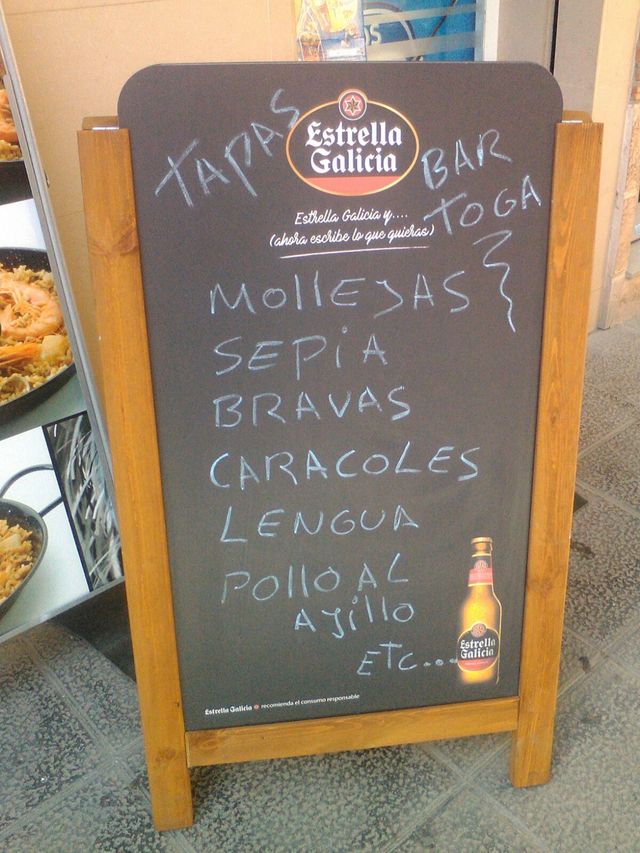 TAPAS
Estrella
Galicia
BAR
TOGA
Estrella Galicia y....
(ahora escribe lo que quieras)
MOllEJAS
SEPiA
BRAVAS
CARACOLES
LENGUA
POllO AL
AJillO
ETC...
Estrella
Galicia
Estrella Galicia recomienda el consumo responsable